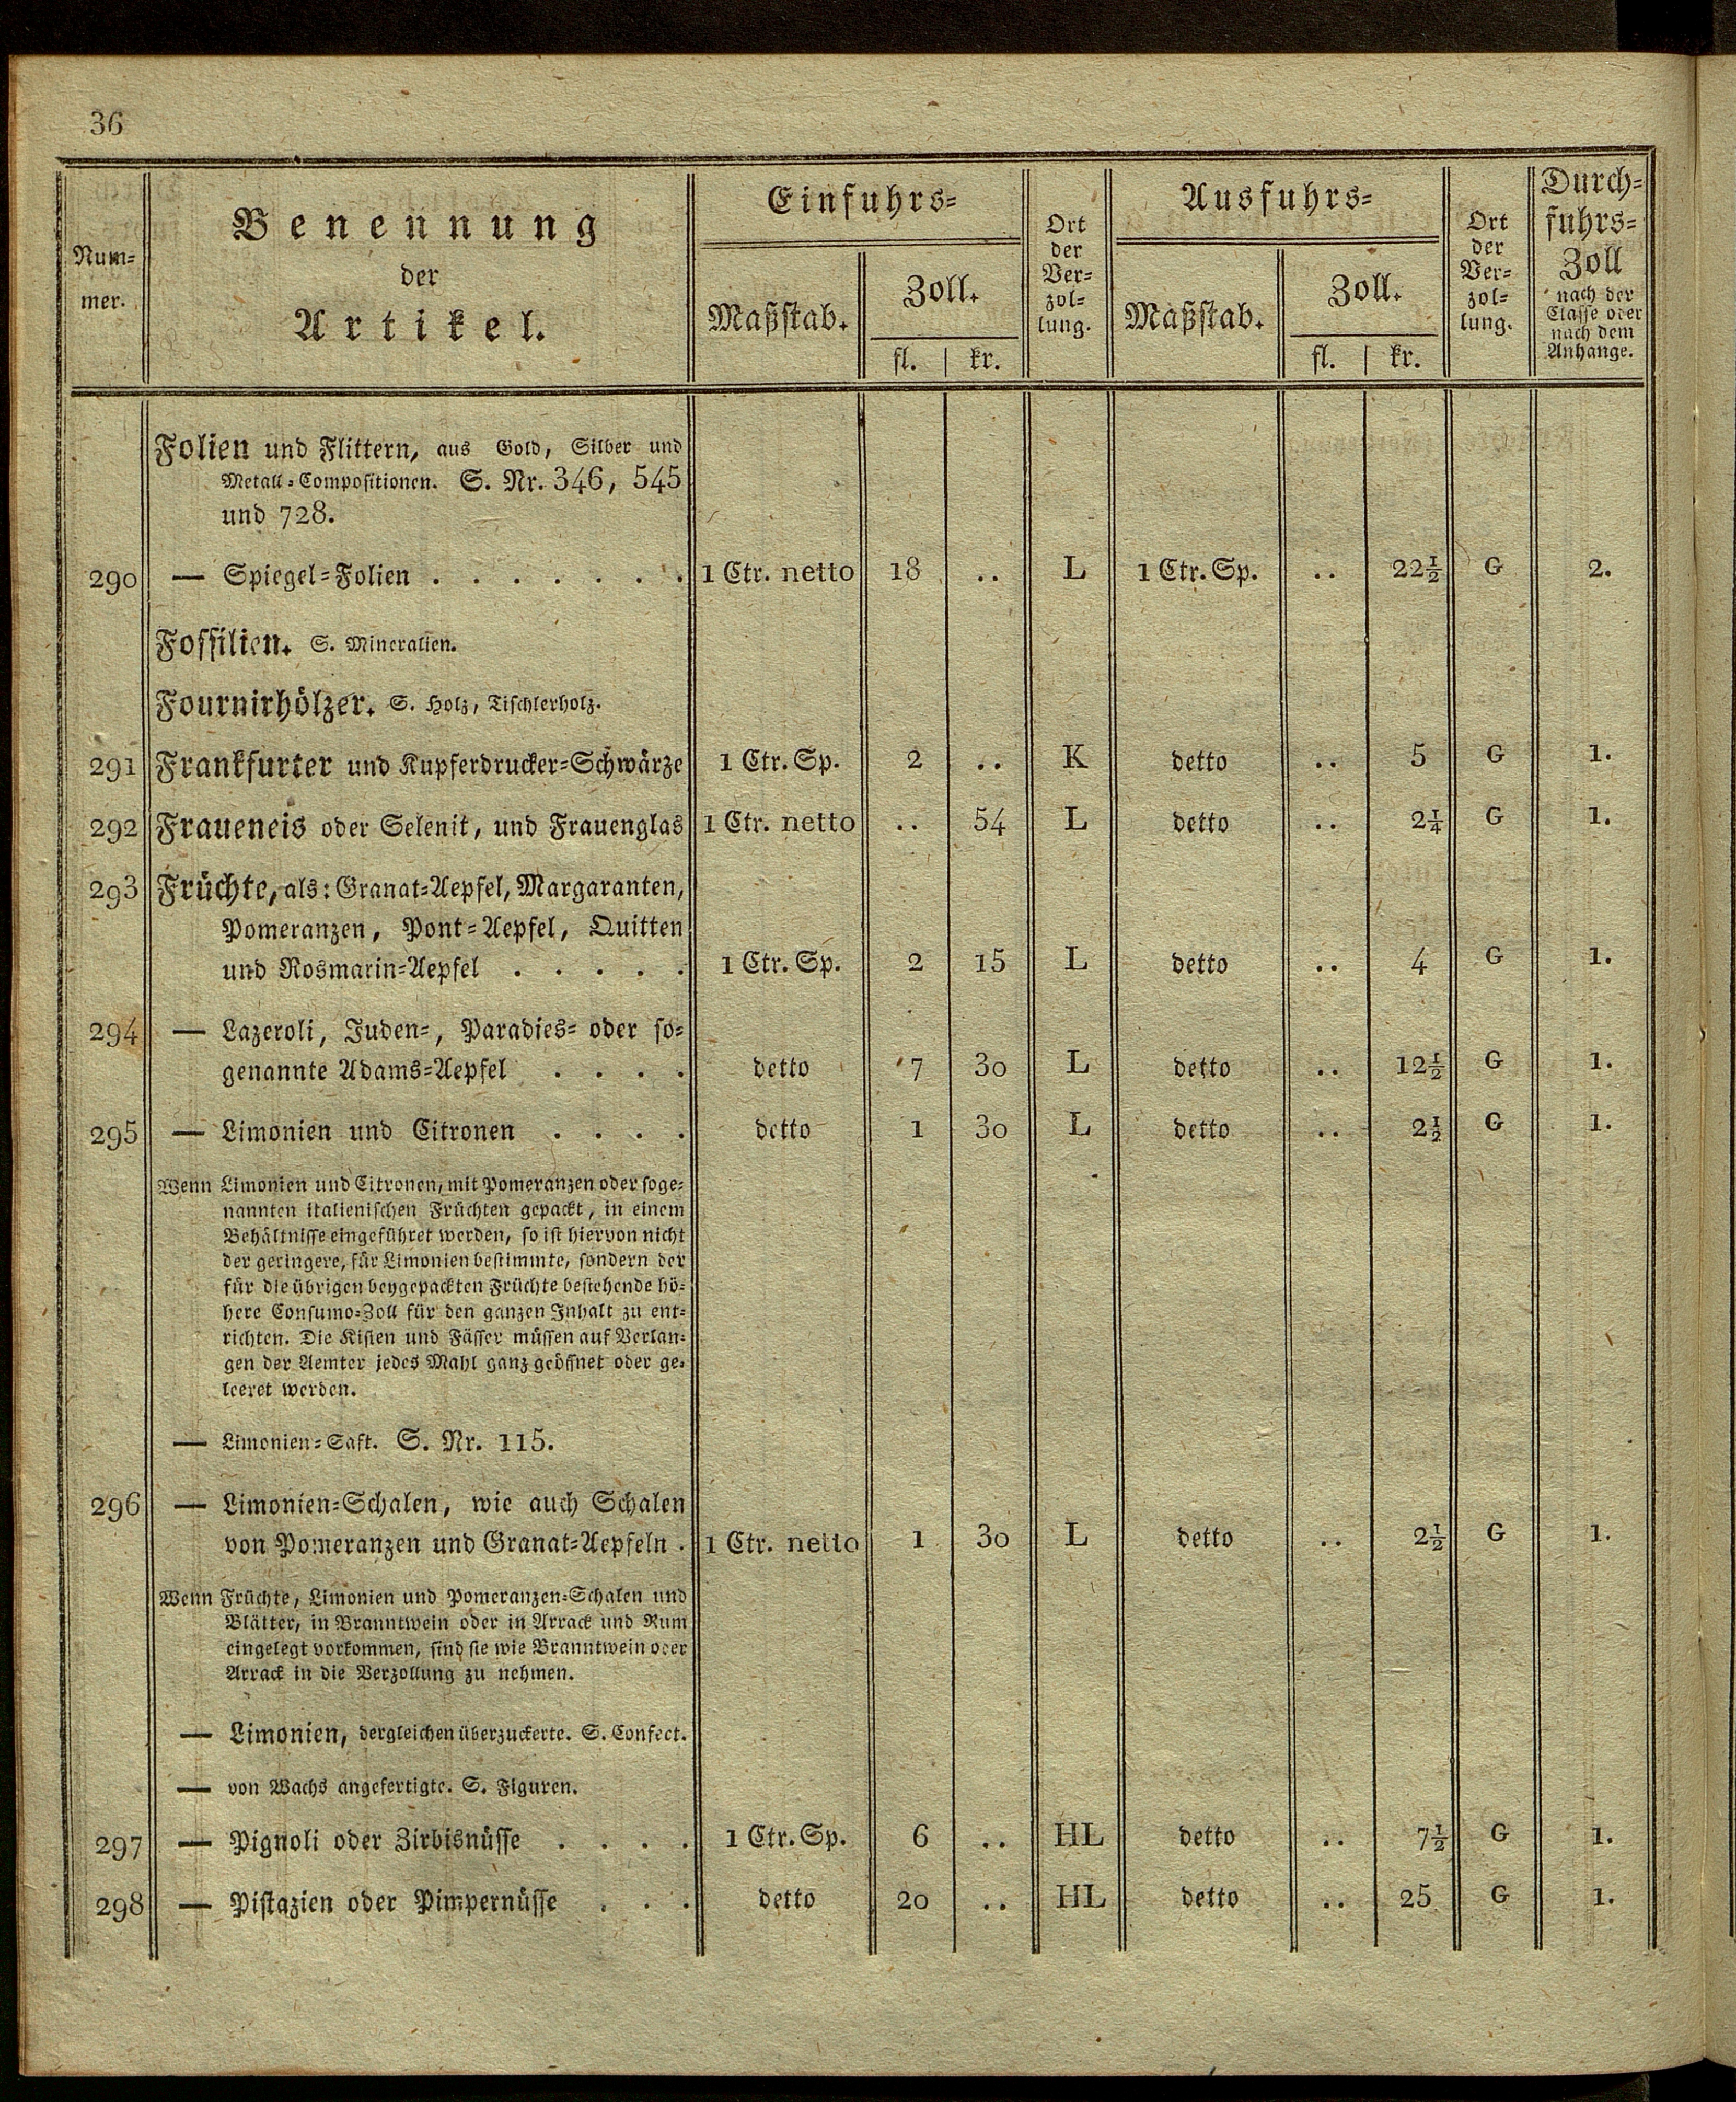 36
Num-
mer.
Benennung
der
Artikel.
Einfuhrs-
Maßstab.
Zoll.
fl. | kr.
Ort
der
Ver-
zol-
lung.
Ausfuhrs-
Maßstab.
Zoll.
fl. | kr.
Ort
der
Ver-
zol-
lung.
Durch-
fuhrs-
Zoll
nach der
Classe oder
nach dem
Anhange.
Folien und Flittern, aus Gold, Silber und
Metall-Compositionen. S. Nr. 346, 545
und 728.
290 — Spiegel-Folien . . . . . . . 1 Ctr. netto 18 .. L 1 Ctr. Sp. .. 22½ G 2.
Fossilien. S. Mineralien.
Fournirhölzer. S. Holz, Tischlerholz.
291 Frankfurter und Kupferdrucker-Schwärze 1 Ctr. Sp. 2 .. K detto .. 5 G 1.
292 Fraueneis oder Selenit, und Frauenglas 1 Ctr. netto .. 54 L detto .. 2¼ G 1.
293 Früchte, als: Granat-Aepfel, Margaranten,
Pomeranzen, Pont-Aepfel, Quitten
und Rosmarin-Aepfel . . . . . 1 Ctr. Sp. 2 15 L detto .. 4 G 1.
294 — Lazeroli, Juden-, Paradies- oder so-
genannte Adams-Aepfel . . . . detto 7 30 L detto .. 12½ G 1.
295 — Limonien und Citronen . . . . detto 1 30 L detto .. 2½ G 1.
Wenn Limonien und Citronen, mit Pomeranzen oder soge-
nannten italienischen Früchten gepackt, in einem
Behältnisse eingeführet werden, so ist hiervon nicht
der geringere, für Limonien bestimmte, sondern der
für die übrigen beygepackten Früchte bestehende hö-
here Consumo-Zoll für den ganzen Inhalt zu ent-
richten. Die Kisten und Fässer müssen auf Verlan-
gen der Aemter jedes Mahl ganz geöffnet oder ge-
leeret werden.
— Limonien-Saft. S. Nr. 115.
296 — Limonien-Schalen, wie auch Schalen
von Pomeranzen und Granat-Aepfeln . 1 Ctr. netto 1 30 L detto .. 2½ G 1.
Wenn Früchte, Limonien und Pomeranzen-Schalen und
Blätter, in Branntwein oder in Arrack und Rum
eingelegt vorkommen, sind sie wie Branntwein oder
Arrack in die Verzollung zu nehmen.
— Limonien, dergleichen überzuckerte. S. Confect.
— von Wachs angefertigte. S. Figuren.
297 — Pignoli oder Zirbisnüsse . . . . 1 Ctr. Sp. 6 .. HL detto .. 7½ G 1.
298 — Pistazien oder Pimpernüsse . . . detto 20 .. HL detto .. 25 G 1.